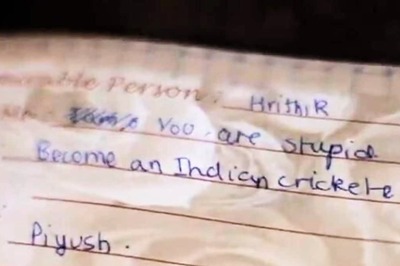 able Person: Hrithik
You are stupid
Become an Indian crickete
Piyush.